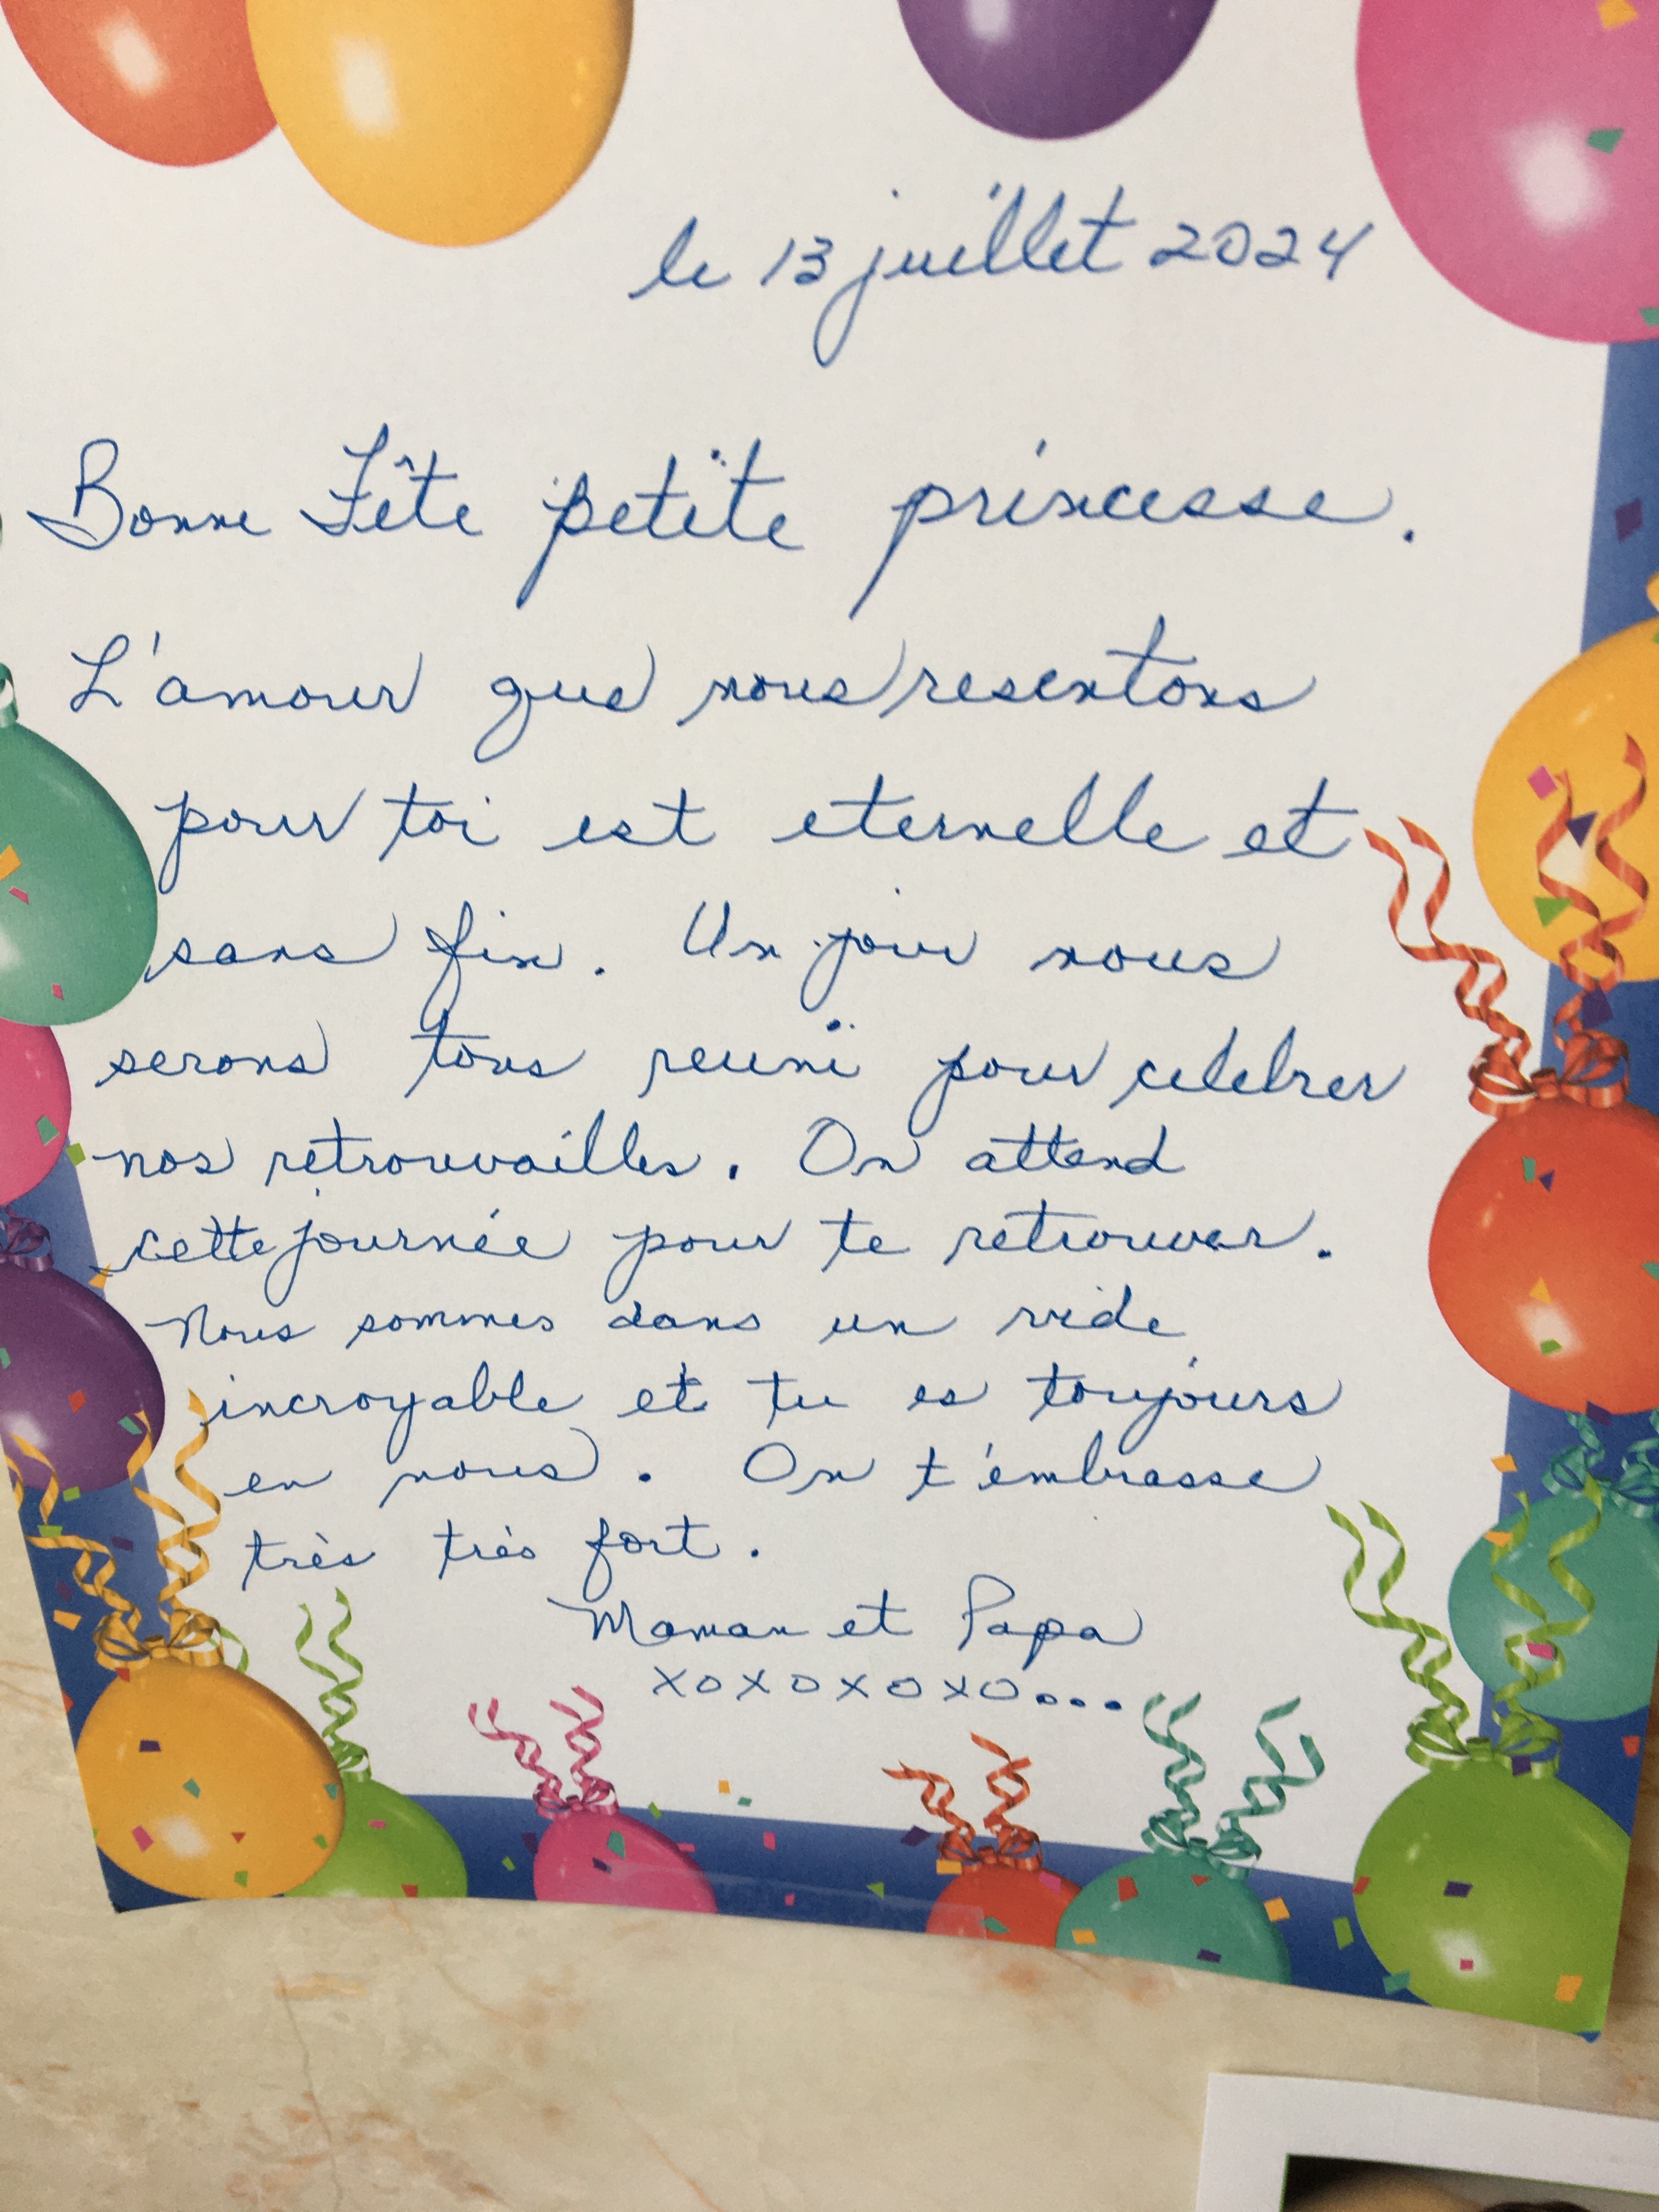 le 13 juillet 2024
Bonne Fête petite princesse.
L'amour que nous resentons
pour toi est eternelle et
sans fin. Un jour nous
serons tous reuni pour celebrer
nos retrouvailles. On attend
cette journée pour te retrouver.
Nous sommes dans un vide
incroyable et tu es toujours
en nous. On t'embrasse
très très fort.
Maman et Papa
xoxoxoxo...